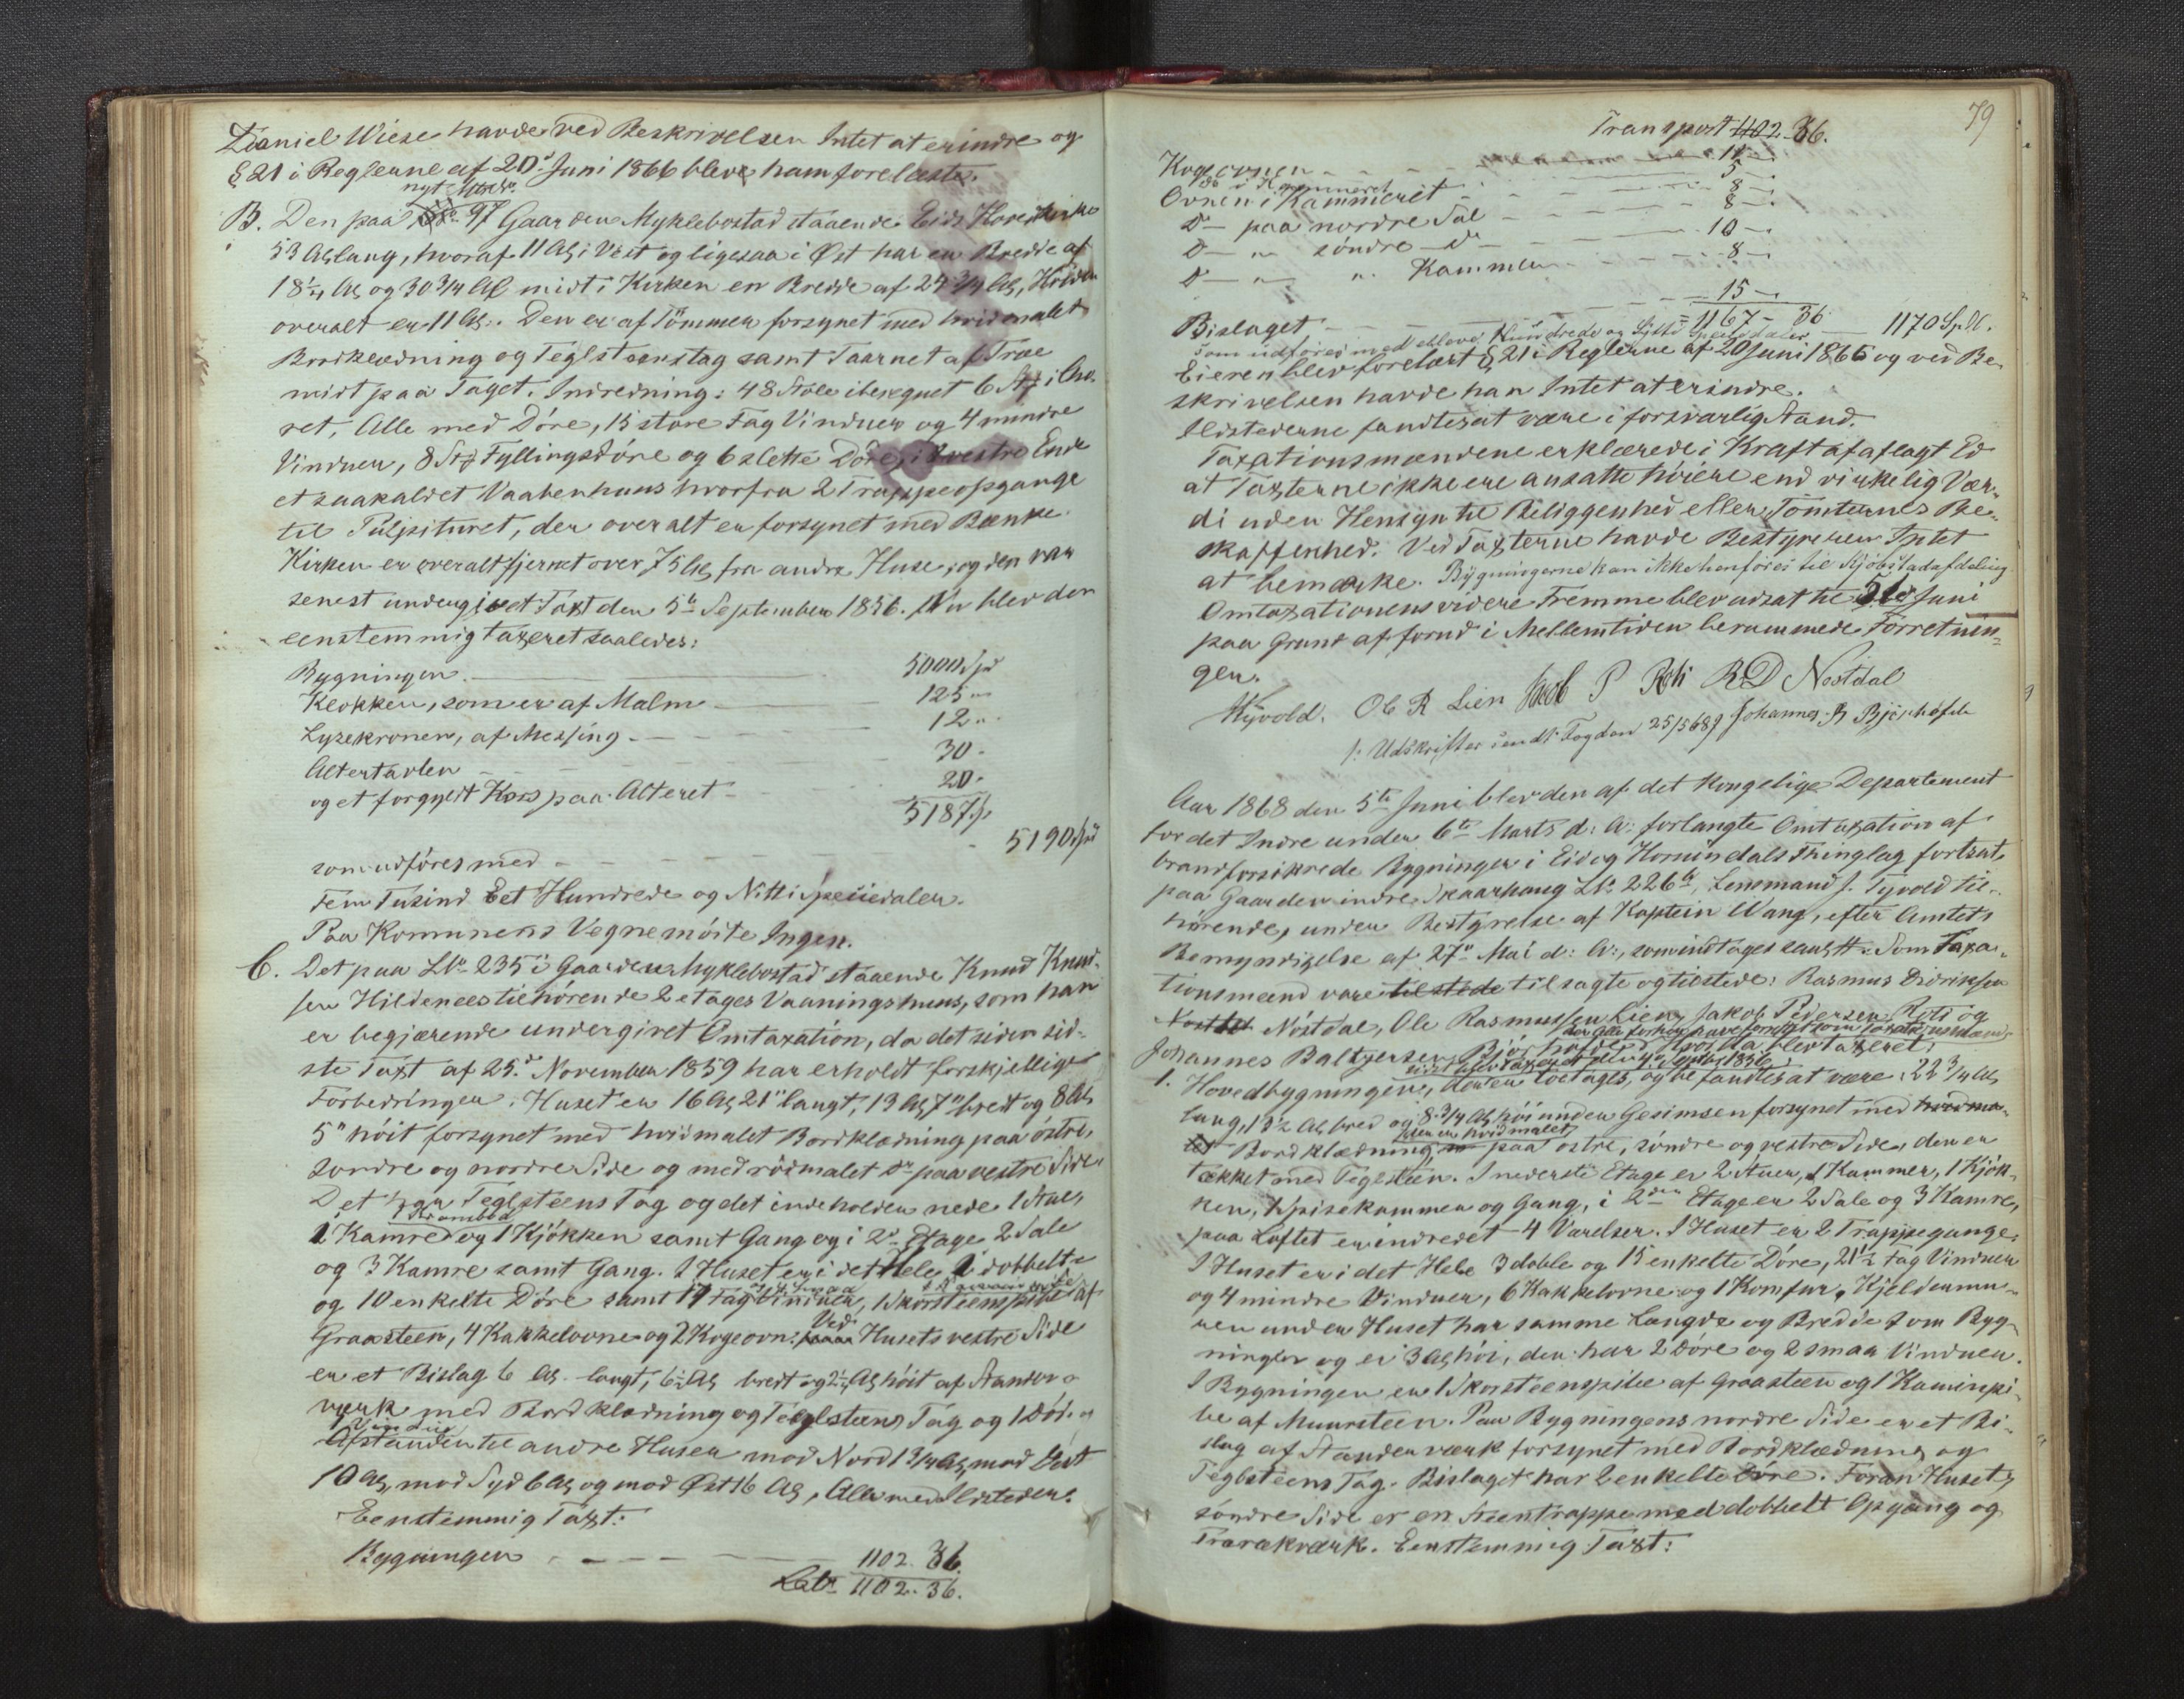 Daniel Wiese havde ved Beskrivelsen Intet at erindre og
§ 21 i Reglerne af 20de Juni 1866 bleve ham forelæste.
B. Den paa nyt 97 Gaarden Myklebostad staaende Eids Hovedkirke
53 Al lang, hvoraf 11 Al i Vest og ligesaa i Øst har en Bredde af
18½ Al og 30¾ Al midt i Kirken en Bredde af 24¾ Al, Høiden
overalt er 11 Al. Den er af Tømmer forsynet med hvidmalet
Bordklædning og Teglsteenstag samt Taarnet af Træ
midt paa Taget. Indredning: 48 Stole iberegnet 6 St i Cho-
ret, Alle med Döre, 15 store Fag Vinduer og 4 mindre
Vinduer, 8 St Fyllingsdöre og 6 slette Döre, i vestre Ende
et saakaldet Vaabenhuus hvorfra 2 Trappeopgange
til Pulpituret, der overalt er forsynet med Bænke.
Kirken er overalt fjernet over 75 Al fra andre Huse, og den var
senest undergivet Taxt den 5te September 1856. Nu blev den
eenstemmig taxeret saaledes:
Bygningen 5000 Spd
Klokken, som er af Malm 125 "
Lysekronen, af Messing 12 "
Altertavlen 30 -
og et forgyldt Kors paa Alteret 20 -
5187 Sp
som udföres med 5190 Spd
Fem Tusind Eet Hundrede og Nitti Speciedaler.
Paa Komunens Vegne möite Ingen.
C. Det paa LNo 235 i Gaarden Myklebostad staaende Knud Knud-
sen Hildenees tilhörende 2 etages Vaaningshuus, som han
er begjærende undergivet Omtaxation, da det siden sid-
ste Taxt af 25de November 1859 har erholdt forskjellige
Forbedringer. Huset er 16 Al 21" langt, 13 Al 7" bredt og 8 Al
5" höit forsynet med hvidmalet Bordklædning paa östre,
söndre og nordre Side og med rödmalet do paa vestre Side
Det har Teglsteens Tag og det indeholder nede 1 Stue,
1 Krambod
2 Kamre og 1 Kjökken samt Gang og i 2d Etage 2 Sale
og 3 Kamre samt Gang. I Huset er i det Hele 2 dobbelte
og 10 enkelte Döre samt 17 Fag Vinduer, 1 Skorsteenspibe af
Graasteen, 4 Kakkelovne og 2 Kogeovn. Ved Husets vestre Side
er et Bislag 6 Al langt, 6½ Al bredt og 2½ Al höit af Stander-
værk med Bordklædning og Teglsteens Tag og 1 Dör. og
1 Vindue
Afstanden til andre Huser mod Nord 13¼ Al, mod Vest
10 Al, mod Syd 6 Al og mod Øst 16 Al, Alle med Ildsteder.
Eenstemmig Taxt:
Bygningen 1102. 36.
Lat. 1102. 36.
79
Transport 1102 36.
Kogeovnen 11 -
do i Kammeret 5 -
Ovnen i Kammeret 8 -
Do paa nordre Sal 8 -
D - " söndre do 10 -
D - " " Kammer 8 -
Bislaget 15 -
1167 - 36
som udföres med elleve Hundrede og Sytti Speciedaler 1170 Spd.
Eieren blev forelæst § 21 i Reglerne af 20 Juni 1866 og ved Be-
skrivelsen havde han Intet at erindre.
Ildstederne fandtes at være i forsvarlig Stand.
Taxationsmændene erklærede i Kraft af aflagt Ed
at Taxterne ikke ere ansatte höiere end virkelig Vær-
di uden Hensyn til Beliggenhed eller Tomternes Be-
skaffenhed. Ved Taxterne havde Bestyreren Intet
at bemærke. Bygningerne kan ikke henföres til Kjöbstadafdeling
Omtaxationens videre Fremme blev udsat til 5te Juni
paa Grund af forud i Mellemtiden berammede Forretnin-
ger.
Tyvold. Ole R Lien Jacob P Roti R D Nøstdal
/: Udskrifter sendt Fogden 25/5 68/ Johannes B Björhofde
Aar 1868 den 5te Juni blev den af det Kongelige Departement
for det Indre under 6te Marts d: A: forlangte Omtaxation af
brandforsikrede Bygninger i Eid og Hornindals Thinglag fortsat
paa Gaarden indre Skaarhaug LNo 226, Lensmand J. Tyvold til-
hörende, under Bestyrelse af Kaptein Wang, efter Amtets
Bemyndigelse af 27de Mai d: A:, som indtages saal. Som Taxa-
tionsmænd vare tilstede tilsagte og tilstede: Rasmus Didriksen
Nöstdal, Ole Rasmussen Lien, Jakob Pedersen Roti og
Johannes Baltzersen Björhofde, hvorpaa blev taxeret,
1. Hovedbygningen, den er toetages, og befandtes at være 22¾ Al
lang, 13½ Al bred og 8¾ Al höi under Gesimsen forsynet med hvidma-
let Bordklædning, den er hvidmalet paa östre, söndre og vestre Side, den er
tækket med Teglsteen. I nederste Etage er 2 Stuer, 1 Kammer, 1 Kjök-
ken, 1 Spisekammer og Gang, i 2den Etage er 2 Sale og 3 Kamre,
paa Loftet er indredet 4 Værelser. I Huset er 2 Trappegange.
I Huset er i det Hele 3 doble og 15 enkelte Döre, 21½ Fag Vinduer
og 4 mindre Vinduer, 6 Kakkelovne og 1 Komfur, Kjeldermu-
ren under Huset har samme Længde og Bredde som Byg-
ningen og er 3 Al höi, den har 2 Döre og 2 smaa Vinduer.
I Bygningen er 1 Skorsteenspibe af Graasteen og 1 Kaminpi-
be af Muursteen. Paa Bygningens nordre Side er et Bi-
slag af Standerværk forsynet med Bordklædning og
Teglsteens Tag. Bislaget har 2 enkelte Döre. Foran Husets
söndre Side er en Steentrappe med dobbelt Opgang og
Trærækværk. Eenstemmig Taxt: